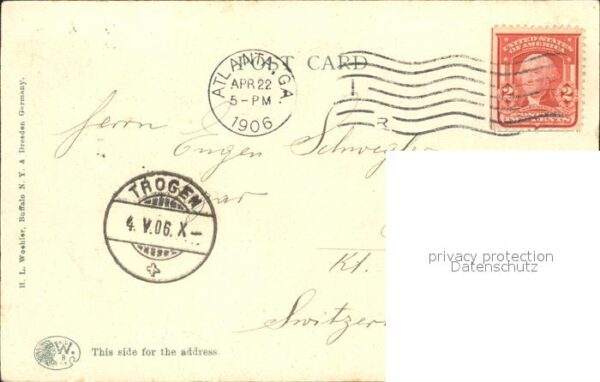 POST CARD
ATLANTA, GA.
APR 22
5-PM
1906
R
UNITED STATES OF AMERICA
2 2
TWO CENTS
Herrn Eugen Schwegler
TROGEN
4.V.06.X-
Kt.
Switzer
privacy protection
Datenschutz
H. L. Woehler, Buffalo N. Y. & Dresden Germany.
W.
This side for the address.